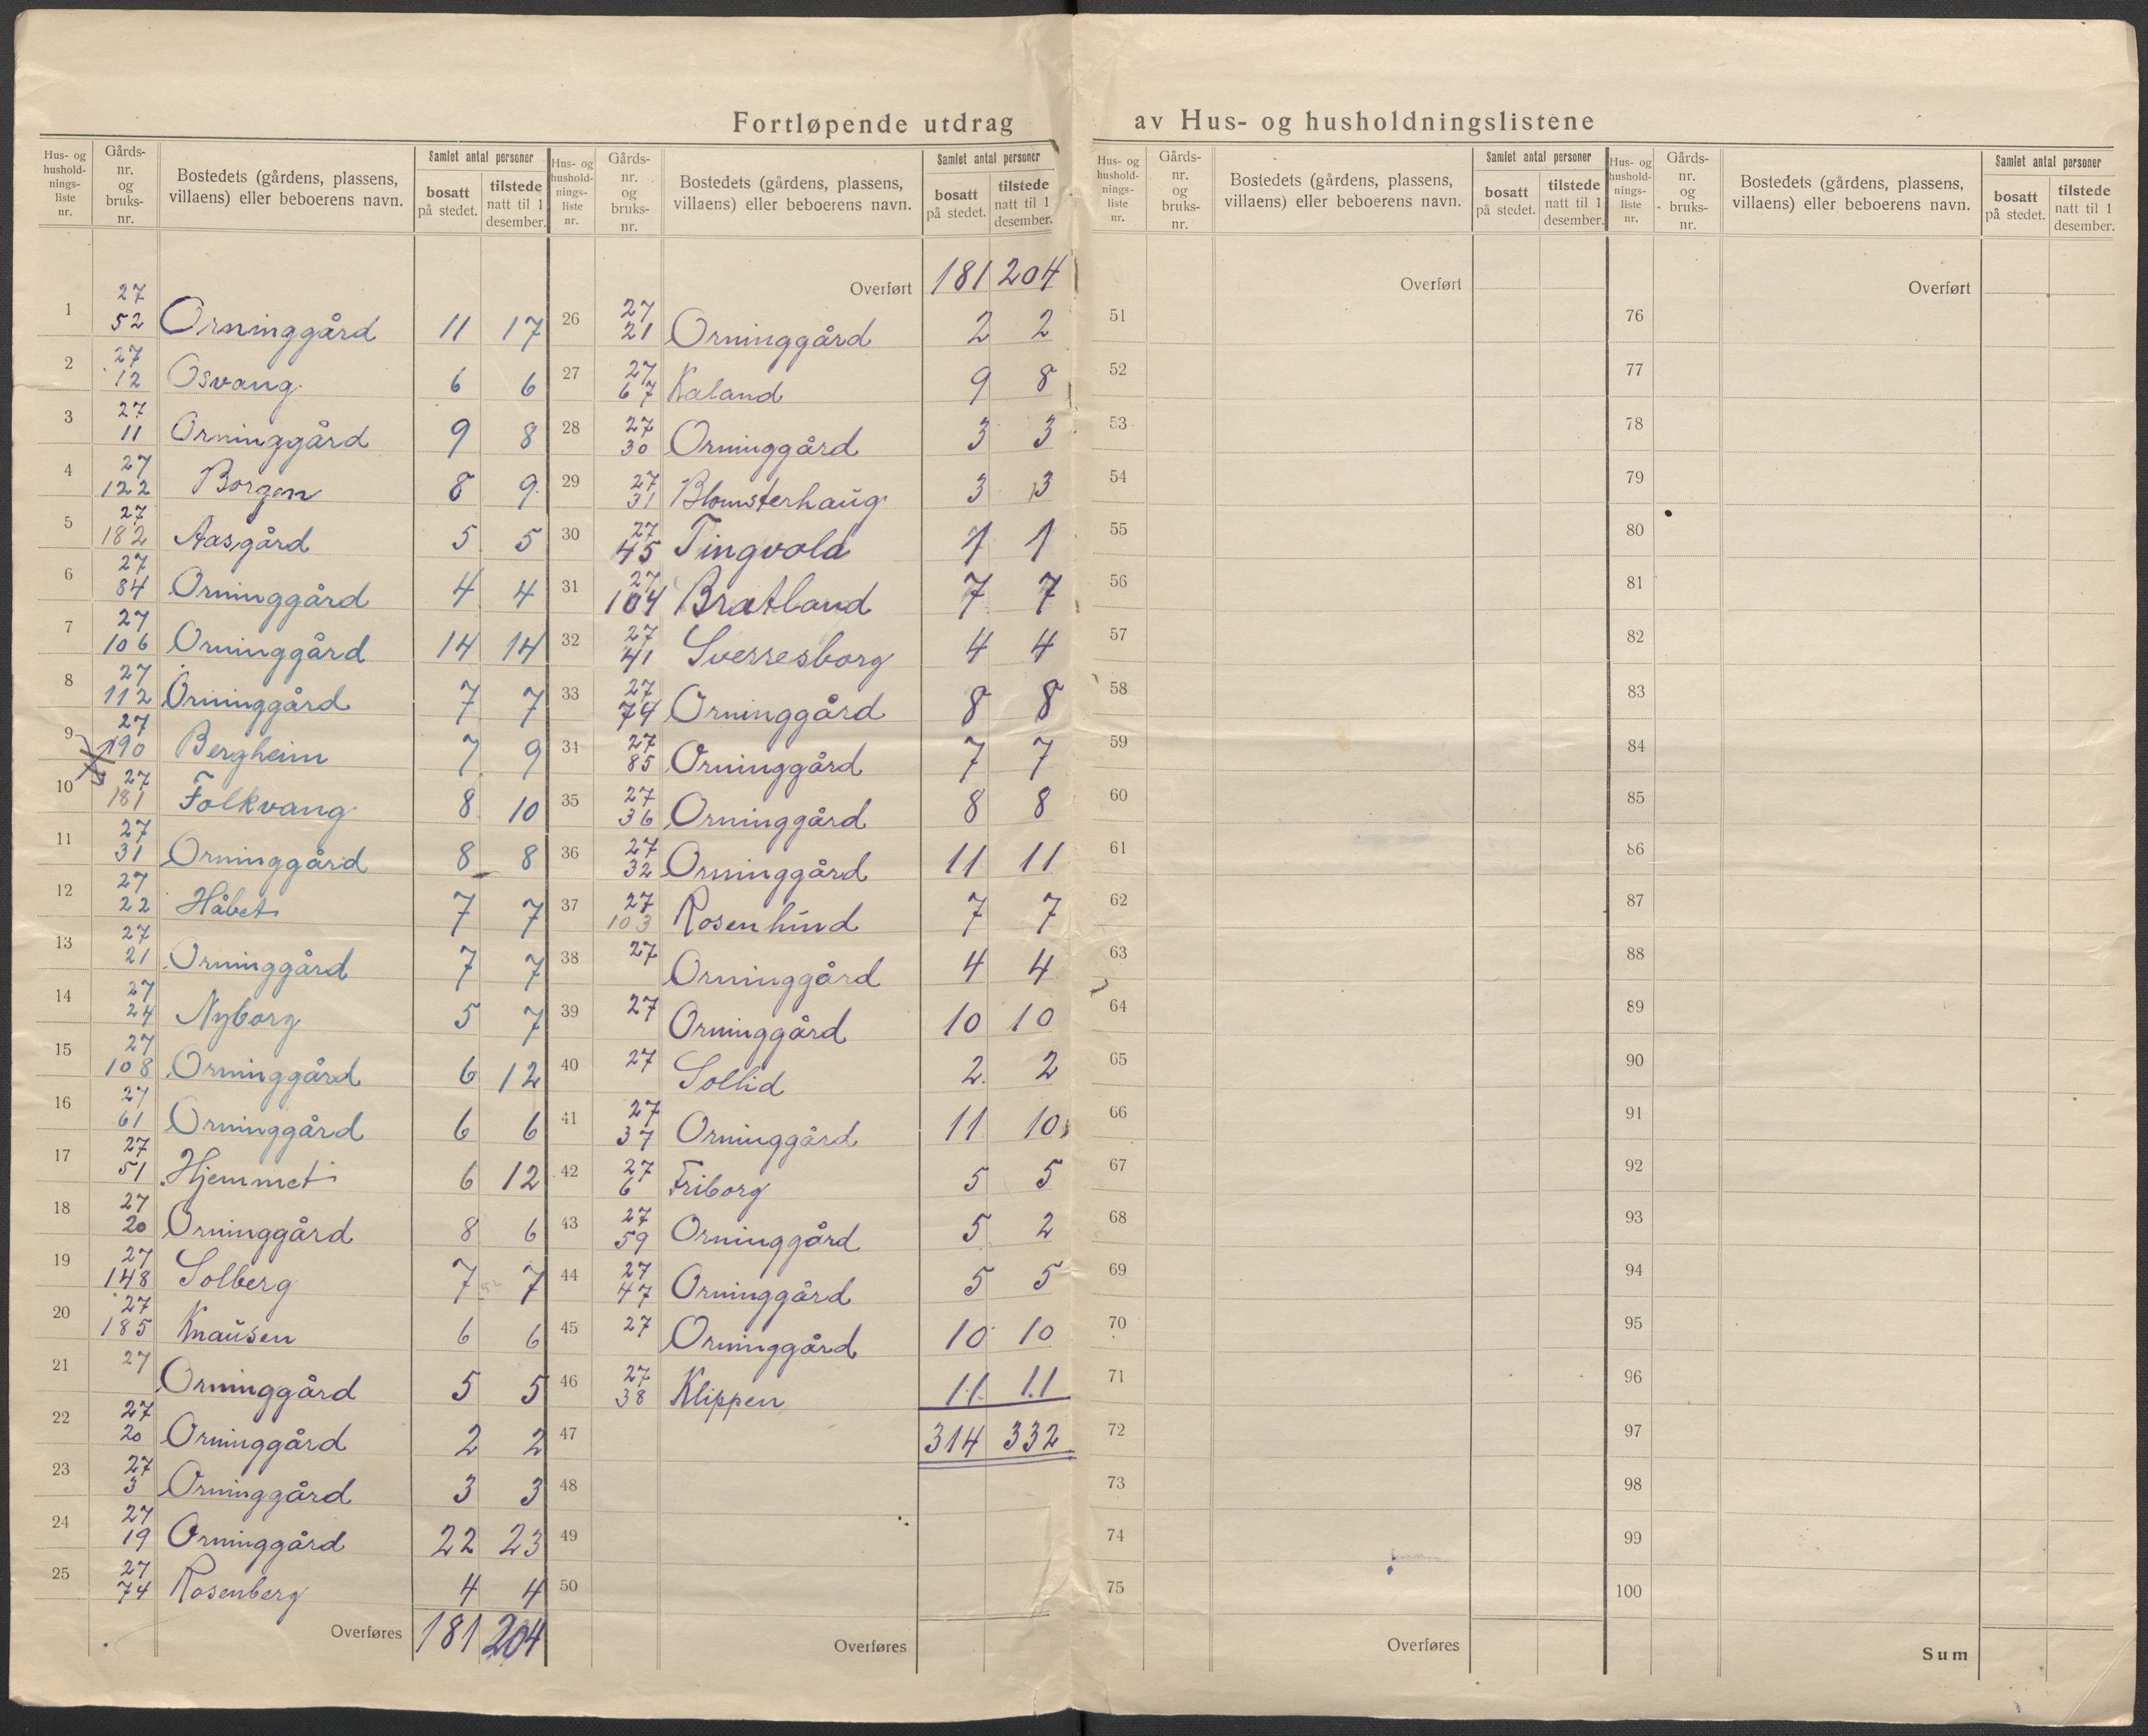 Fortløpende utdrag av Hus- og husholdningslistene
Hus- og husholdnings-liste nr. | Gårds-nr. og bruks-nr. | Bostedets (gårdens, plassens, villaens) eller beboerens navn. | Samlet antal personer | bosatt på stedet. | tilstede natt til 1 desember.
1 27 52 Orninggård 11 17
2 27 12 Osvang 6 6
3 27 11 Orninggård 9 8
4 27 122 Borgen 8 9
5 27 182 Aasgård 5 5
6 27 84 Orninggård 4 4
7 27 106 Orninggård 14 14
8 27 112 Orninggård 7 7
9 27 190 Bergheim 7 9
10 27 181 Folkvang 8 10
11 27 31 Orninggård 8 8
12 27 22 Håbet 7 7
13 27 21 Orninggård 7 7
14 27 24 Nyborg 5 7
15 27 108 Orninggård 6 12
16 27 61 Orninggård 6 6
17 27 51 Hjemmet 6 12
18 27 20 Orninggård 8 6
19 27 148 Solberg 7 7
20 27 185 Knausen 6 6
21 27 Orninggård 5 5
22 27 20 Orninggård 2 2
23 27 3 Orninggård 3 3
24 27 19 Orninggård 22 23
25 27 74 Rosenberg 4 4
Overføres 181 204
Hus- og husholdnings-liste nr. | Gårds-nr. og bruks-nr. | Bostedets (gårdens, plassens, villaens) eller beboerens navn. | Samlet antal personer | bosatt på stedet. | tilstede natt til 1 desember.
Overført 181 204
26 27 21 Orninggård 2 2
27 27 67 Kaland 9 8
28 27 30 Orninggård 3 3
29 27 31 Blomsterhaug 3 3
30 27 45 Tingvold 1 1
31 27 104 Bratland 7 7
32 27 41 Sverresborg 4 4
33 27 74 Orninggård 8 8
34 27 85 Orninggård 7 7
35 27 36 Orninggård 8 8
36 27 32 Orninggård 11 11
37 27 103 Rosenhund 7 7
38 27 Orninggård 4 4
39 27 Orninggård 10 10
40 27 Sollid 2 2
41 27 37 Orninggård 11 10
42 27 6 Friborg 5 5
43 27 59 Orninggård 5 2
44 27 47 Orninggård 5 5
45 27 Orninggård 10 10
46 27 38 Klippen 11 11
47 314 332
48
49
50
Overføres
Hus- og husholdnings-liste nr. | Gårds-nr. og bruks-nr. | Bostedets (gårdens, plassens, villaens) eller beboerens navn. | Samlet antal personer | bosatt på stedet. | tilstede natt til 1 desember.
Overført
51
52
53
54
55
56
57
58
59
60
61
62
63
64
65
66
67
68
69
70
71
72
73
74
75
Overføres
Hus- og husholdnings-liste nr. | Gårds-nr. og bruks-nr. | Bostedets (gårdens, plassens, villaens) eller beboerens navn. | Samlet antal personer | bosatt på stedet. | tilstede natt til 1 desember.
Overført
76
77
78
79
80
81
82
83
84
85
86
87
88
89
90
91
92
93
94
95
96
97
98
99
100
Sum